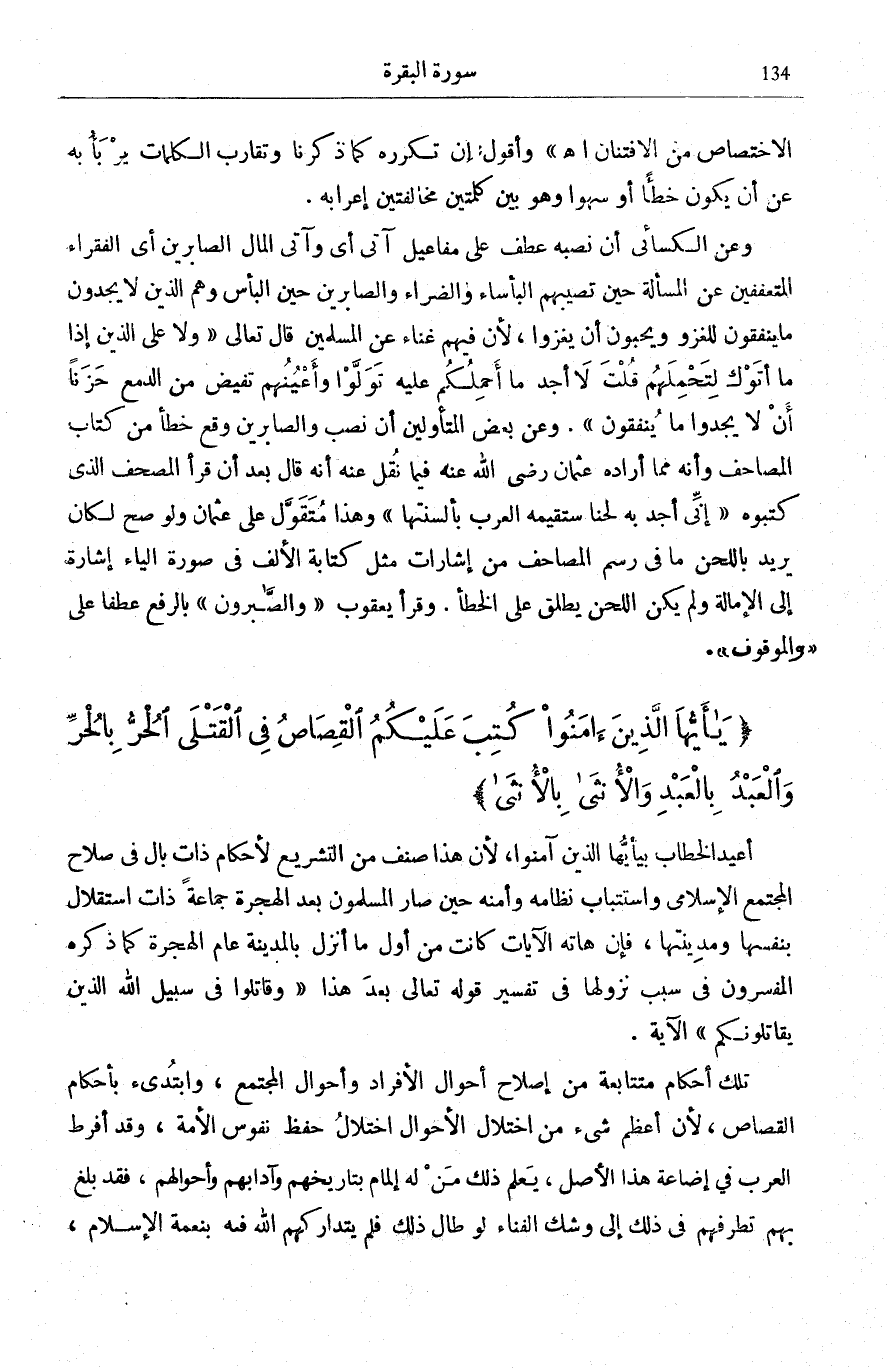 134
سورة البقرة
الاختصاص من الافتنان ا ه » وأقول: إن تـكرره كما ذكرنا وتقارب الـكلمات يرْبَأُ به
عن أن يكون خطأً أو سهوا وهو بين كلمتين مخالفتين إعرابه .
وعن الـكسائى أن نصبه عطف على مفاعيل آتى أى وآتى المال الصابرين أى الفقراء
المتعففين عن المسألة حين تصيبهم البأساء والضراء والصابرين حين البأس وهم الذين لا يجدون
ماينفقون للغزو ويحبون أن يغزوا ، لأن فيهم غناء عن المسلمين قال تعالى « ولا على الذين إذا
ما أتَوْك لِتَحْمِلَهُم قُلْتَ لَا أجد ما أَحملُـكُم عليه تَوَلَّوْا وأَعْيُنُهم تفيض من الدمع حَزَنًا
أَنْ لا يجدوا ما يُنفقون » . وعن بعض المتأولين أن نصب والصابرين وقع خطأ من كتاب
المصاحف وأنه مما أراده عثمان رضى الله عنه فيما نُقل عنه أنه قال بعد أن قرأ المصحف الذى
كتبوه « إنِّى أجد به لحنا ستقيمه العرب بألسنتها » وهذا مُتَقَوَّل على عثمان ولو صح لـكان
يريد باللحن ما فى رسم المصاحف من إشارات مثل كتابة الألف فى صورة الياء إشارة
إلى الإمالة ولم يكن اللحن يطلق على الخطأ . وقرأ يعقوب « والصَّـٰبرون » بالرفع عطفا على
«والموفون».
﴿ يَـٰأَيُّهَا ٱلَّذِينَ ءَامَنُوا۟ كُتِبَ عَلَيْـكُمُ ٱلْقِصَاصُ فِى ٱلْقَتْـلَى ٱلْحُرُّ بِالْحُرِّ
وَٱلْعَبْدُ بِالْعَبْدِ وَالْأُنثَىٰ بِالْأُنثَىٰ﴾
أعيدالخطاب بيأيُّها الذين آمنوا، لأن هذا صنف من التشريع لأحكام ذات بال فى صلاح
المجتمع الإسلامى واستتباب نظامه وأمنه حين صار المسلمون بعد الهجرة جماعةً ذات استقلال
بنفسها ومدينتها ، فإن هاته الآيات كانت من أول ما أنزل بالمدينة عام الهجرة كما ذكره
المفسرون فى سبب نزولها فى تفسير قوله تعالى بعدَ هذا « وقاتلوا فى سبيل الله الذين
يقاتلونـكم » الآية .
تلك أحكام متتابعة من إصلاح أحوال الأفراد وأحوال المجتمع ، وابتُدىء بأحكام
القصاص ، لأن أعظم شىء من اختلال الأحوال اختلالُ حفظ نفوس الأمة ، وقد أفرط
العرب في إضاعة هذا الأصل ، يَعلم ذلك مَنْ له إلمام بتاريخهم وآدابهم وأحوالهم ، فقد بلغ
بهم تطرفهم فى ذلك إلى وشك الفناء لو طال ذلك فلم يتداركهم الله فيه بنعمة الإسـلام ،